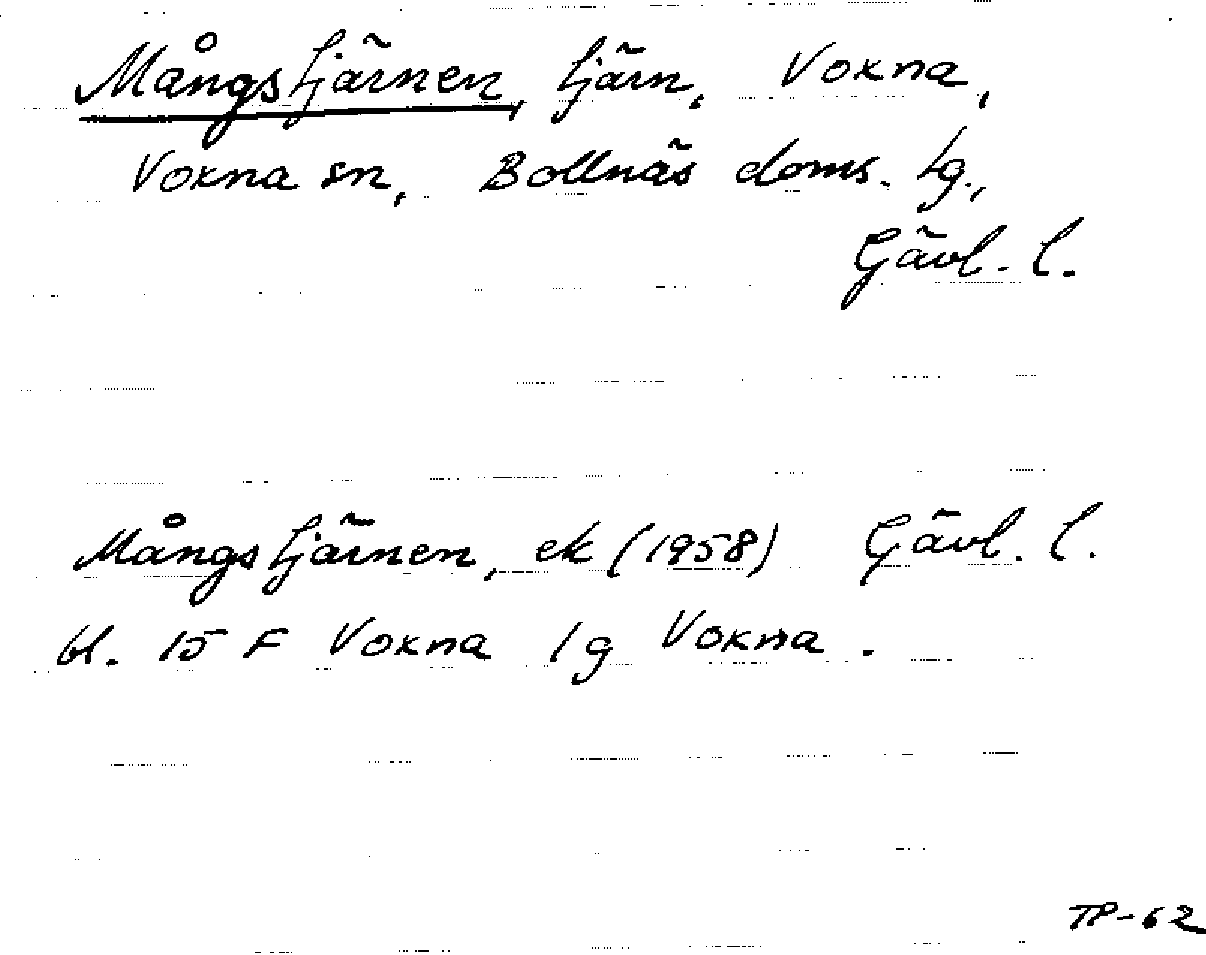 Mångstjärnen, tjärn, Voxna,
Voxna sn, Bollnäs doms. tg.,
Gävl. l.
Mångstjärnen, ek (1958) Gävl. l.
bl. 15 F Voxna 1 g Voxna.
TP-62